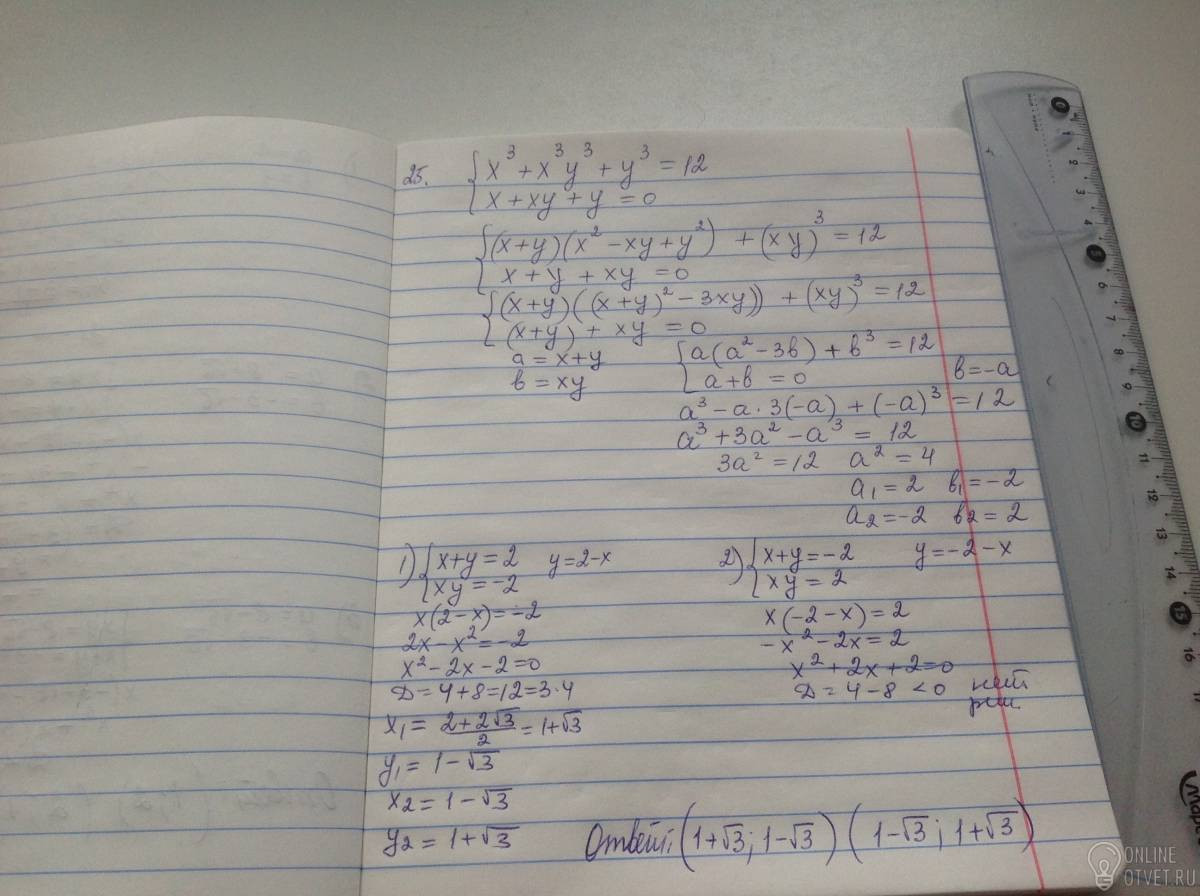 25. { x³ + x³y³ + y³ = 12
x + xy + y = 0
{ (x+y)(x² - xy + y²) + (xy)³ = 12
x + y + xy = 0
{ (x+y)((x+y)² - 3xy)) + (xy)³ = 12
(x+y) + xy = 0
a = x+y
в = xy
{ a(a² - 3в) + в³ = 12
a + в = 0 в = -a
a³ - a · 3(-a) + (-a)³ = 12
a³ + 3a² - a³ = 12
3a² = 12 a² = 4
a₁ = 2 в₁ = -2
a₂ = -2 в₂ = 2
1) { x+y = 2 y = 2-x
xy = -2
x(2-x) = -2
2x - x² = -2
x² - 2x - 2 = 0
D = 4+8 = 12 = 3·4
x₁ = (2+2√3)/2 = 1+√3
y₁ = 1-√3
x₂ = 1-√3
y₂ = 1+√3
2) { x+y = -2 y = -2-x
xy = 2
x(-2-x) = 2
-x² - 2x = 2
x² + 2x + 2 = 0
D = 4-8 < 0 нет
реш.
Ответ: (1+√3; 1-√3) (1-√3; 1+√3)
0
1
2
3
4
5
6
7
8
9
10
11
12
13
14
15
16
ONLINE
OTVET.RU